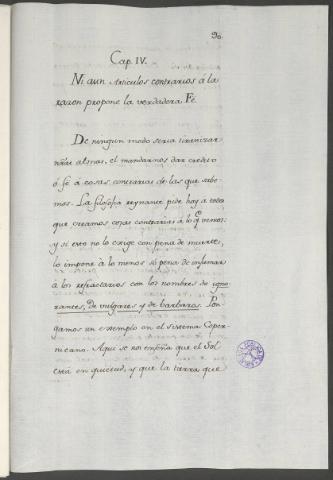 90.
Cap. IV.
Ni aun Articulos contrarios á la
razon propone la verdadera Fé.
De ningun modo seria tiranizar
nr̃as almas, el mandarnos dar credito
ó fé á cosas contrarias de las que sabe-
mos. La filosofia reynante pide hoy a todo
que creamos cosas contrarias á lo q.e vemos:
y si esto no lo exige con pena de muerte,
lo impone á lo menos só pena de infamar
á los refractarios con los nombres de igno-
rantes, de vulgares y de barbaros. Pon-
gamos un exemplo en el sistema Coper-
nicano. Aqui se nos enseña que el Sol
está en quietud, y que la tierra que